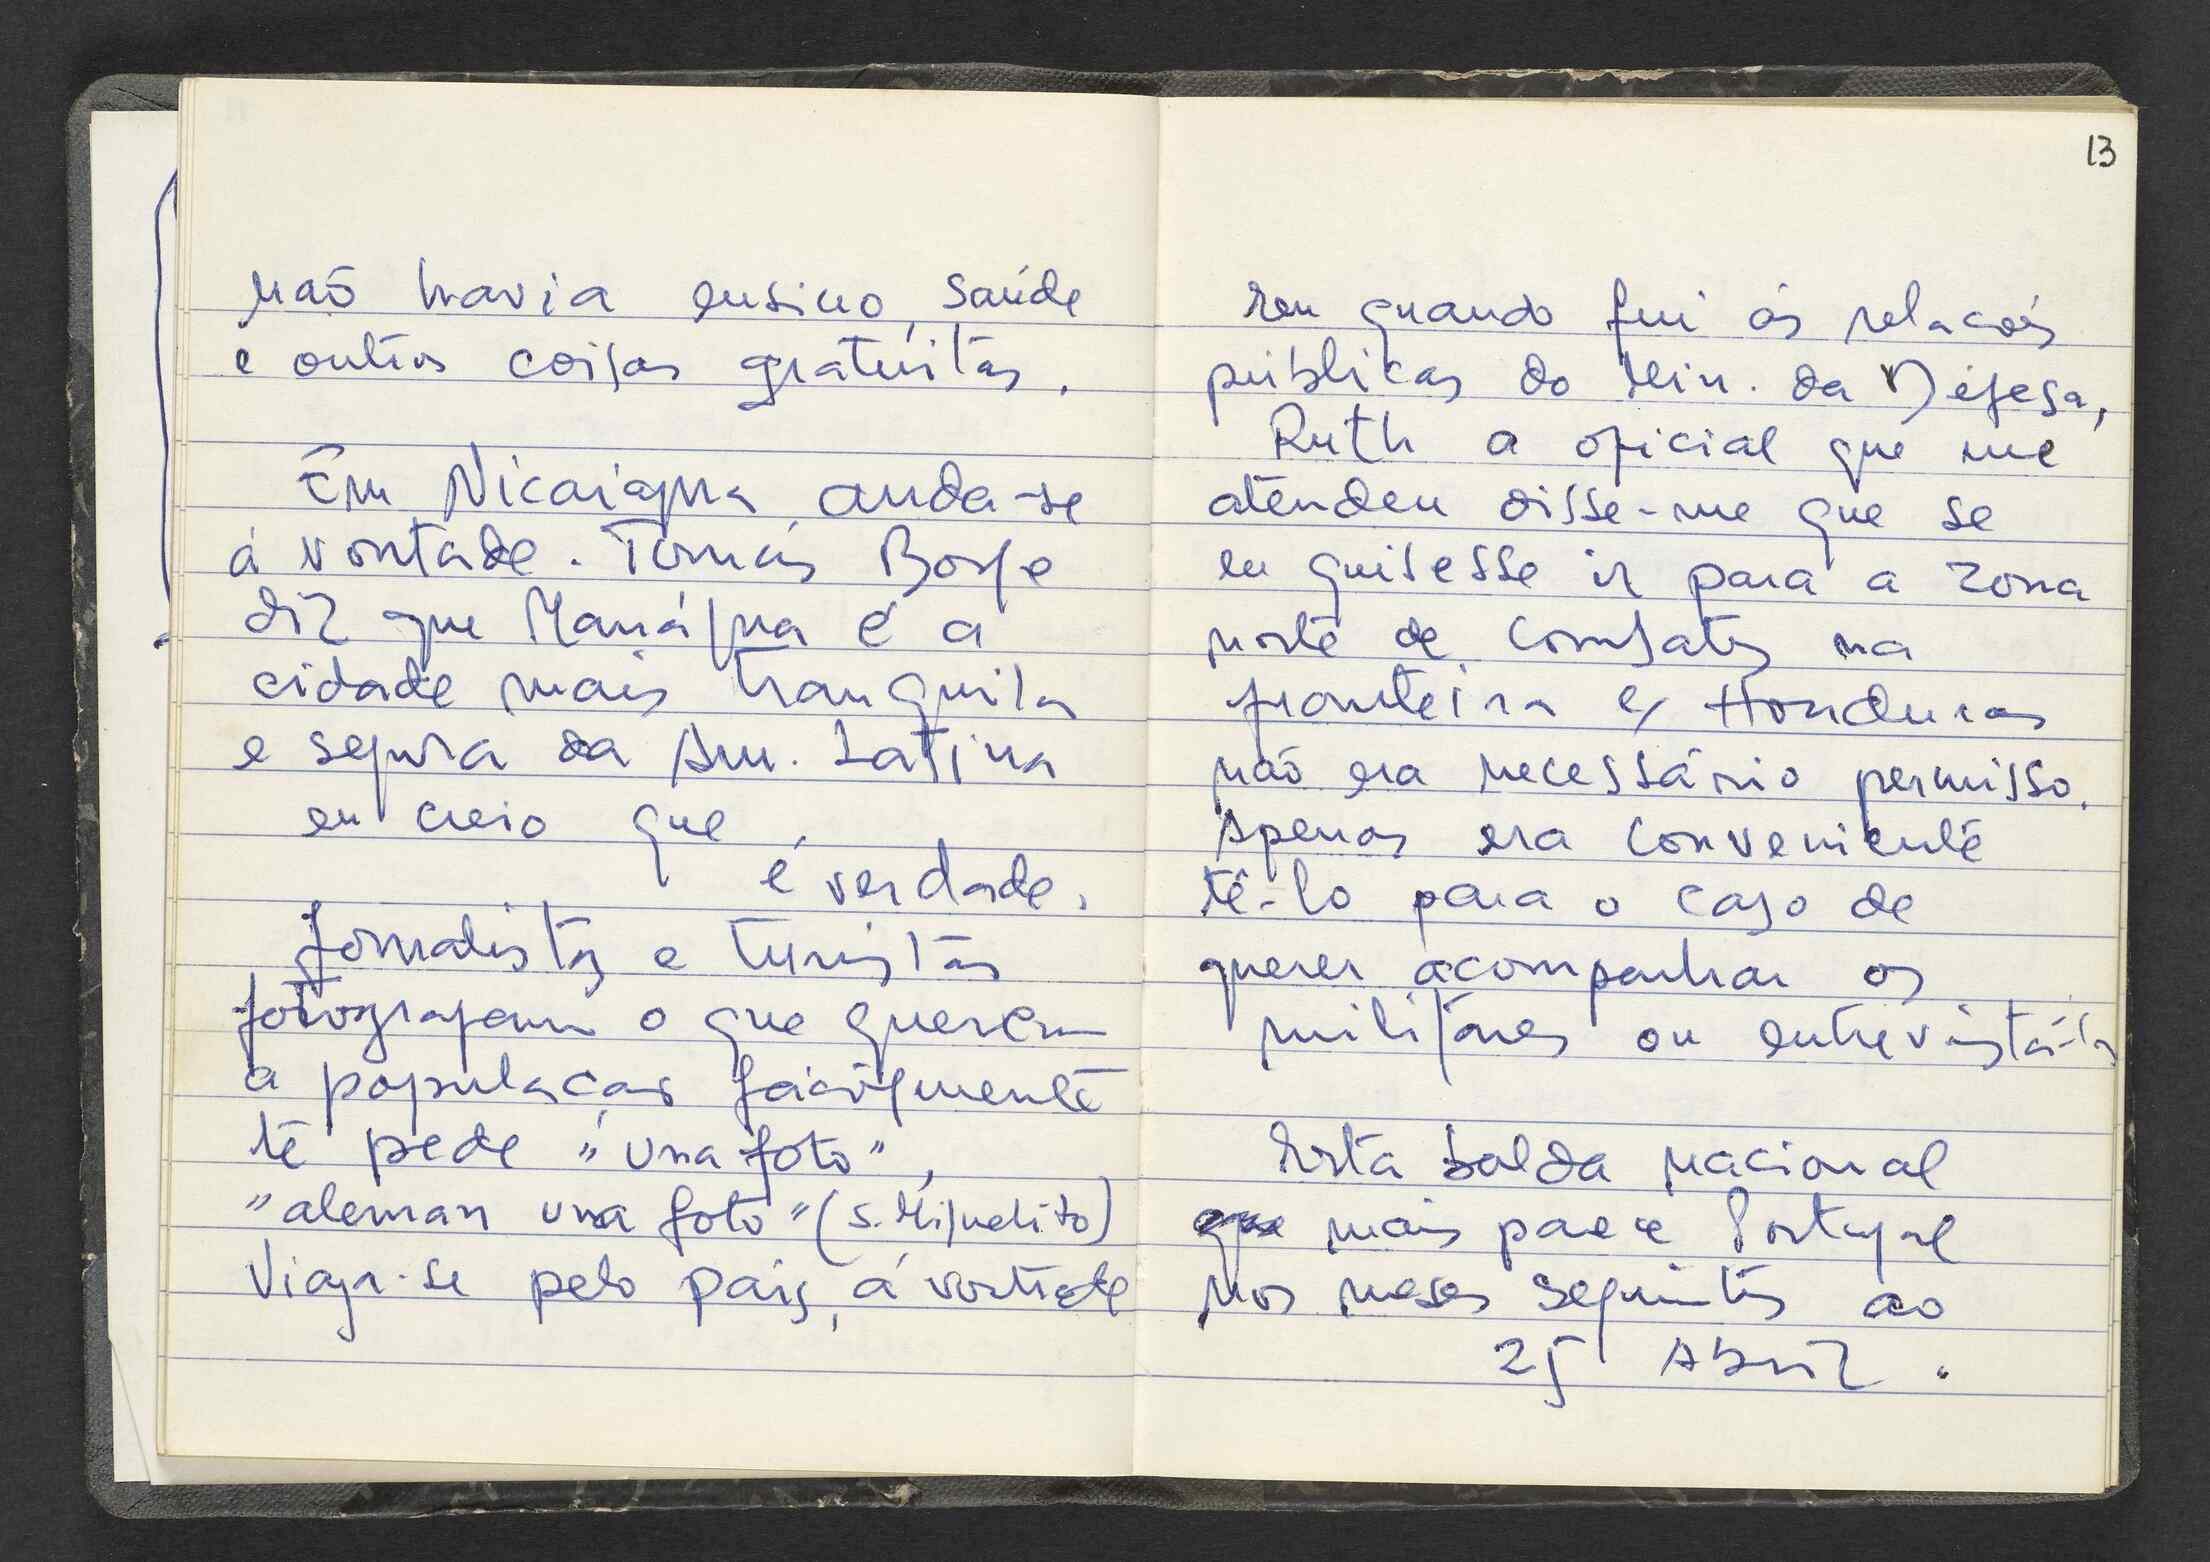 não havia ensino, saúde
e outras coisas gratuitas.
Em Nicarágua anda-se
á vontade. Tomás Borge
diz que Manágua é a
cidade mais tranquila
e segura da Am. Latina
eu creio que
é verdade.
Jornalistas e turistas
fotografam o que querem
a populacao facilmente
te pede "una foto",
"aleman una foto" (S. Miguelito)
Viaja-se pelo país, á vontade
13
quando fui ás relacões
públicas do Min. da Defesa,
Ruth a oficial que me
atendeu disse-me que se
eu quisesse ir para a zona
norte de combates na
fronteira c/ Honduras
não era necessário permisso.
Apenas era conveniente
tê-lo para o caso de
querer acompanhar os
militares ou entrevistá-los
Esta balda nacional
que mais parece Portugal
nos meses seguintes ao
25 Abril.